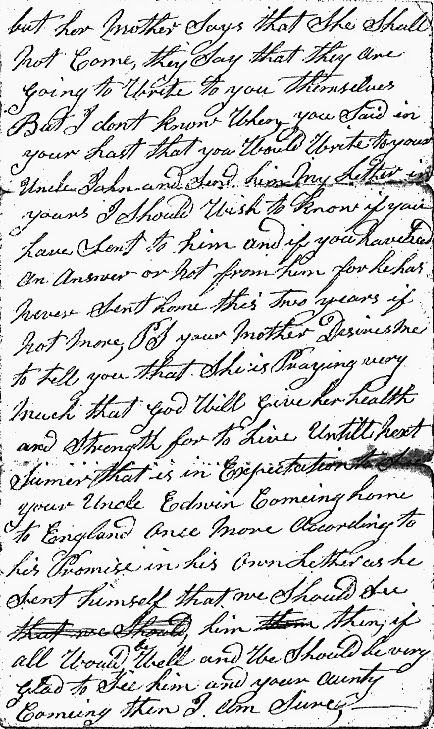 but her Mother Says that She Shall
not Come, they Say that they are
going to Write to you themselves
But I dont know When, you Said in
your Last that you Would Write to your
Uncle John and Send him My Letter in
yours I Should Wish to know if you
have Sent to him and if you have
an Answer or Not from him for he has
Never Sent home this two years if
Not More, PS your Mother Desires Me
to tell you that She is Praying very
Much that God Will Give her health
and Strength for to Live Untill Next
Sumer that is in Expectation to See
your Uncle Edwin Comeing home
to England once More According to
his Promise in his own Letter as he
Sent himself that we Should See
that we Should, him then, if
all Would Well and We Should be very
Glad to See him and your aunty
Comeing then I am Sure,